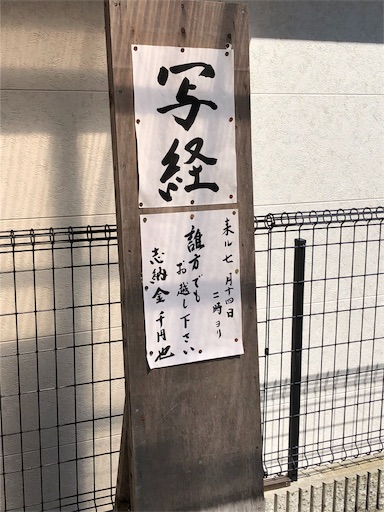 写経
来ル七月十四日
二時ヨリ
誰方でも
お越し下さい
志納金千円也